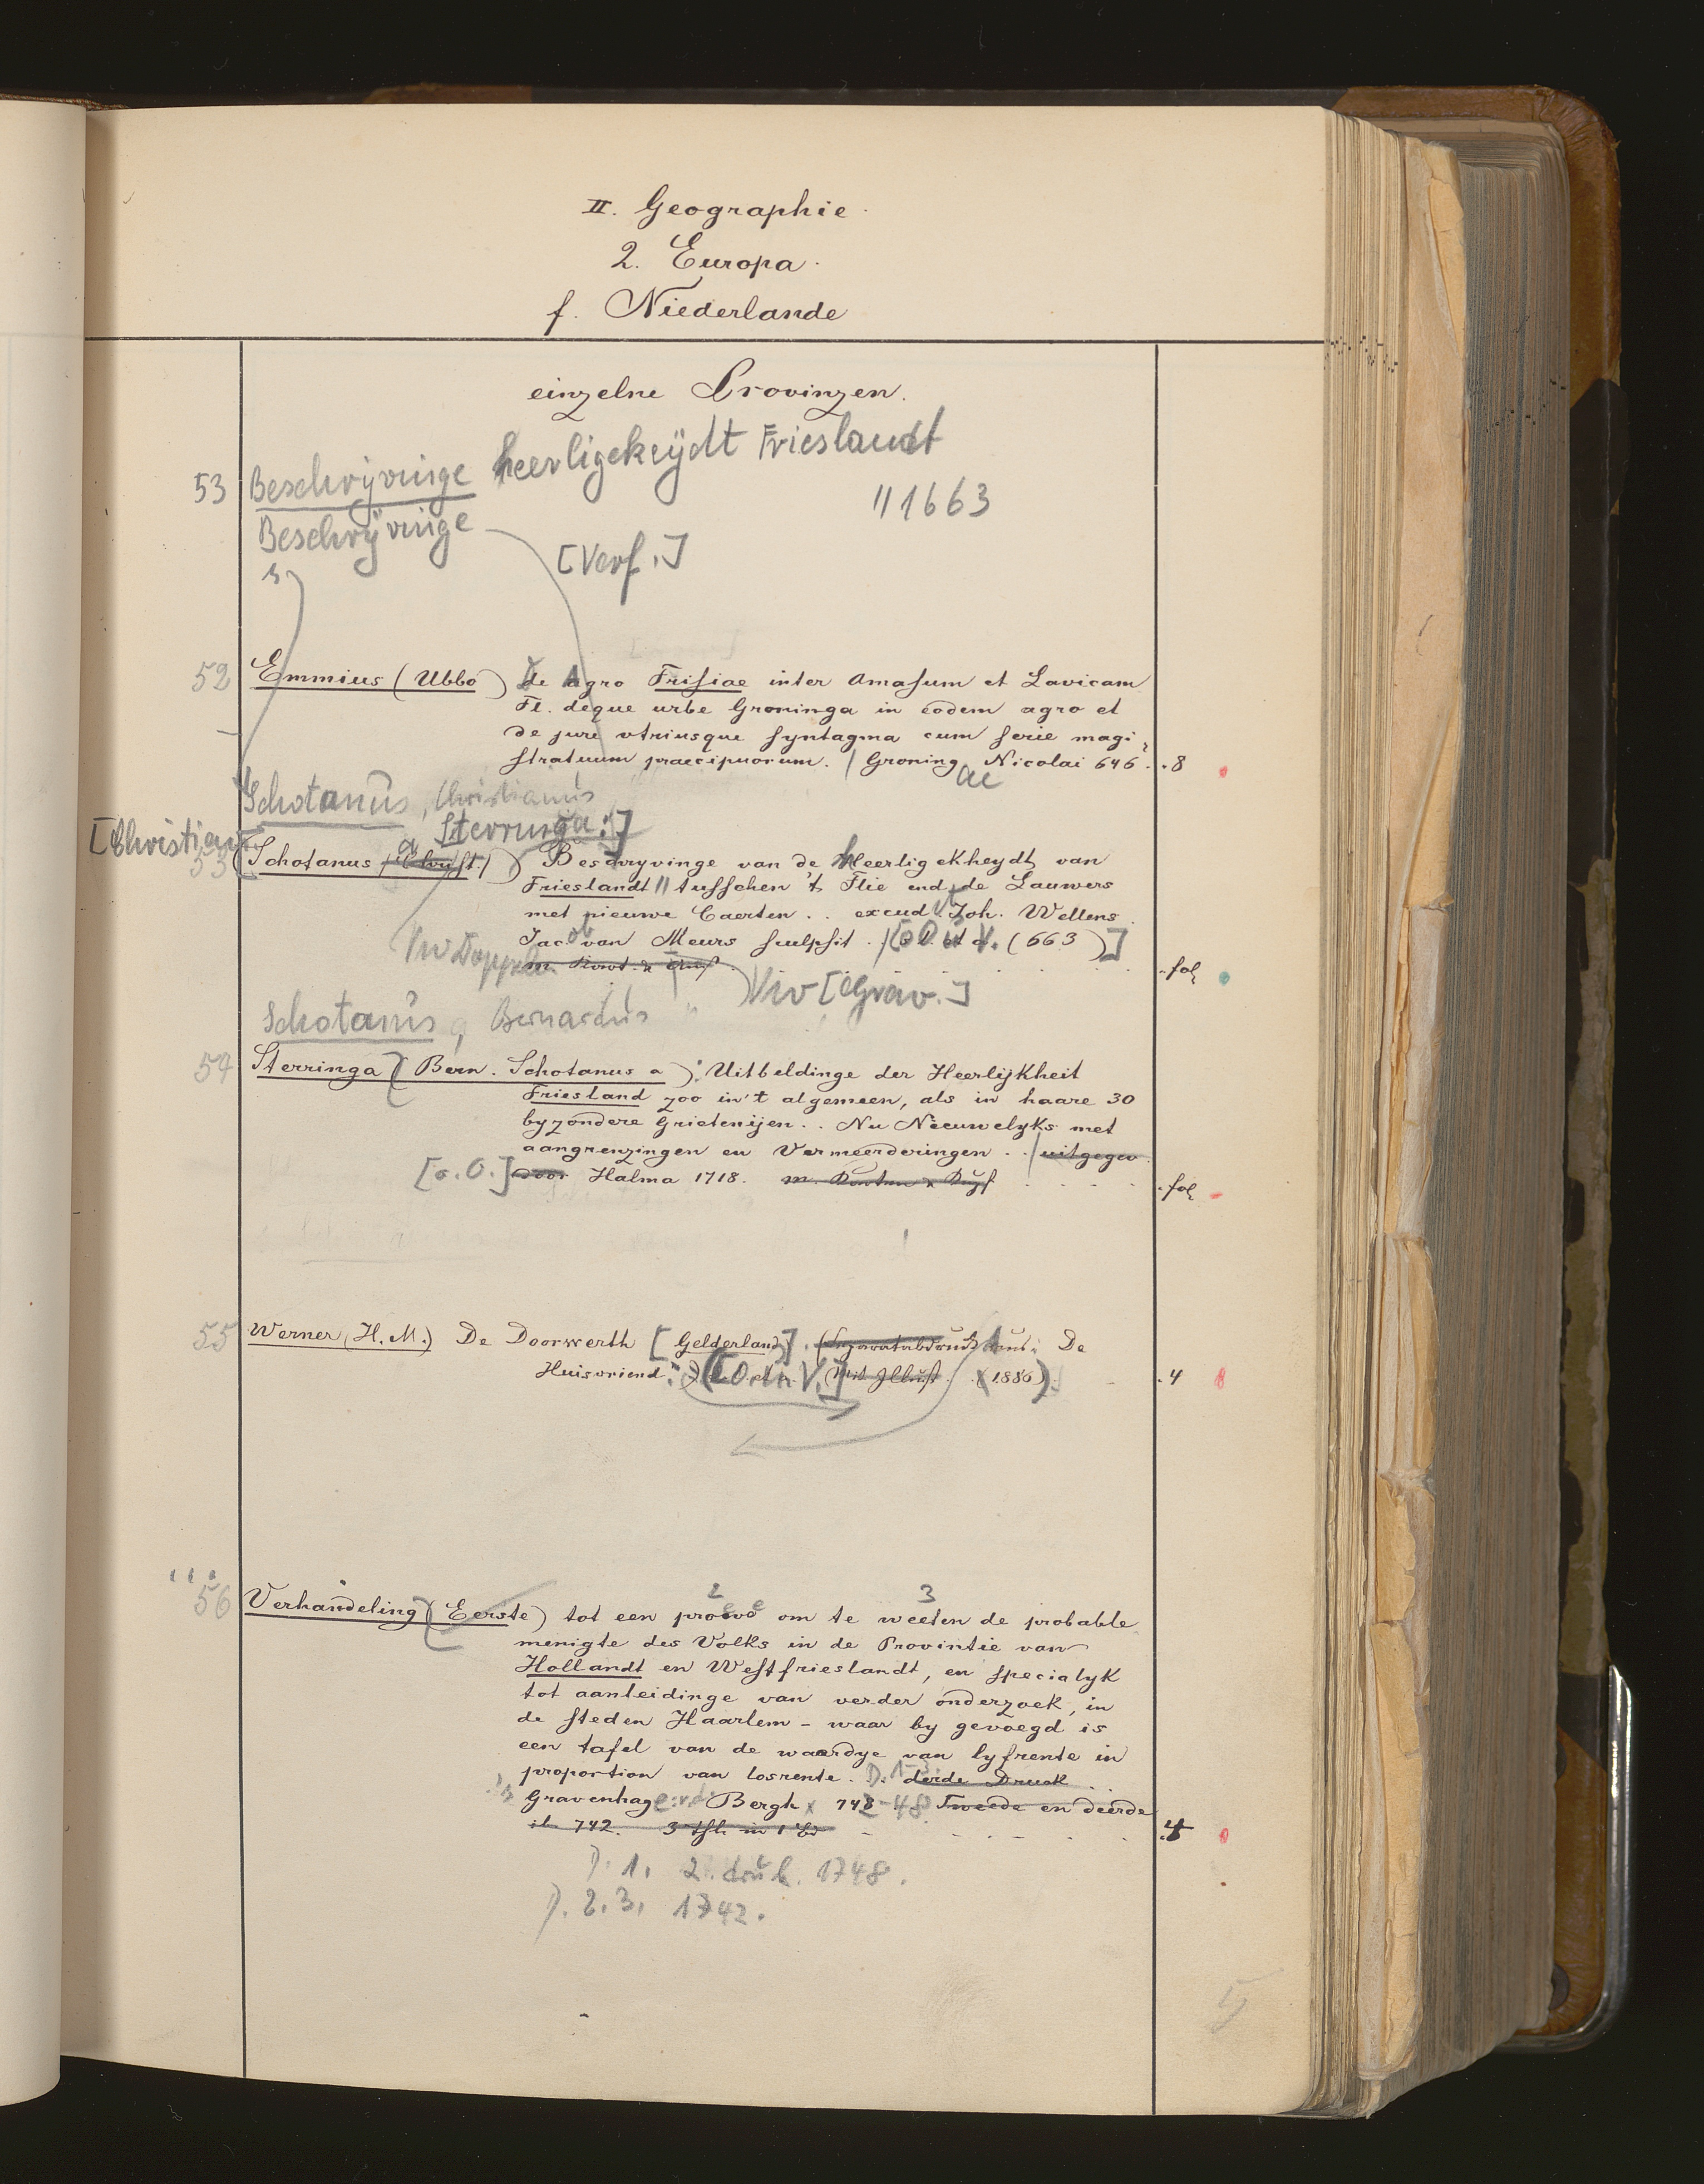 II. Geographie.
2. Europa.
f. Niederlande
einzelne Provinzen.
53 Beschrÿvinge heerligekeÿdt Frieslandt
Beschrÿvinge || 1663
s [Verf.]
52 Emmius (Ubbo) De Agro Frisiae inter Amasum et Lavicam
Fl. deque urbe Groninga in eodem agro et
de jure utriusque syntagma cum serie magi-
stratuum praecipuorum. / Groningae Nicolai 646. 8
Schotanus, Christianus
[Christian. a Sterringa:]
53 (Schotanus (Christ.) Beschryvinge van de Heerligekheydt van
Frieslandt || tusschen 't Flie end de Lauwers
met nieuwe Caerten .. excud. Joh. Wellens
Jacob van Meurs sculpsit. / [o O u V. (663)]
fol
Viv [Grav.]
Schotanus a, Bernardus
54 Sterringa (Bern. Schotanus a): Uitbeldinge der Heerlijkheit
Friesland zoo in't algemeen, als in haare 30
byzondere Grietenijen .. Nu Nieuwelyks met
aangrenzingen en Vermeerderingen .. / uitgegev
[o. O.] door Halma 1718. fol
55 Werner (H. M.) De Doorwerth [Gelderland]. (Separatabdruck aus: De
Huisvriend.) [O. u V.] (Mit Illust. (1886) 4
56 Verhandeling (Eerste) tot een proeve om te weeten de probable
menigte des Volks in de Provintie van
Hollandt en Westfrieslandt, en specialyk
tot aanleidinge van verder onderzoek, in
de steden Haarlem - waar by gevoegd is
een tafel van de waerdye van lyfrente in
proportion van losrente. D. 1-3. derde Druck ..
's Gravenhage: v.d. Bergh 742-48 Tweede en deerde
ib 742. 3 thl. in 1 Bd 4
D. 1. 2. druk. 1748.
D. 2.3. 1742.